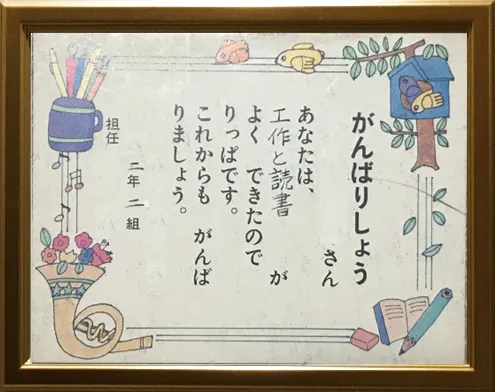 がんばりしょう
さん
あなたは、
工作と読書 が
よく できたので
りっぱです。
これからも がんば
りましょう。
二年 二 組
担任